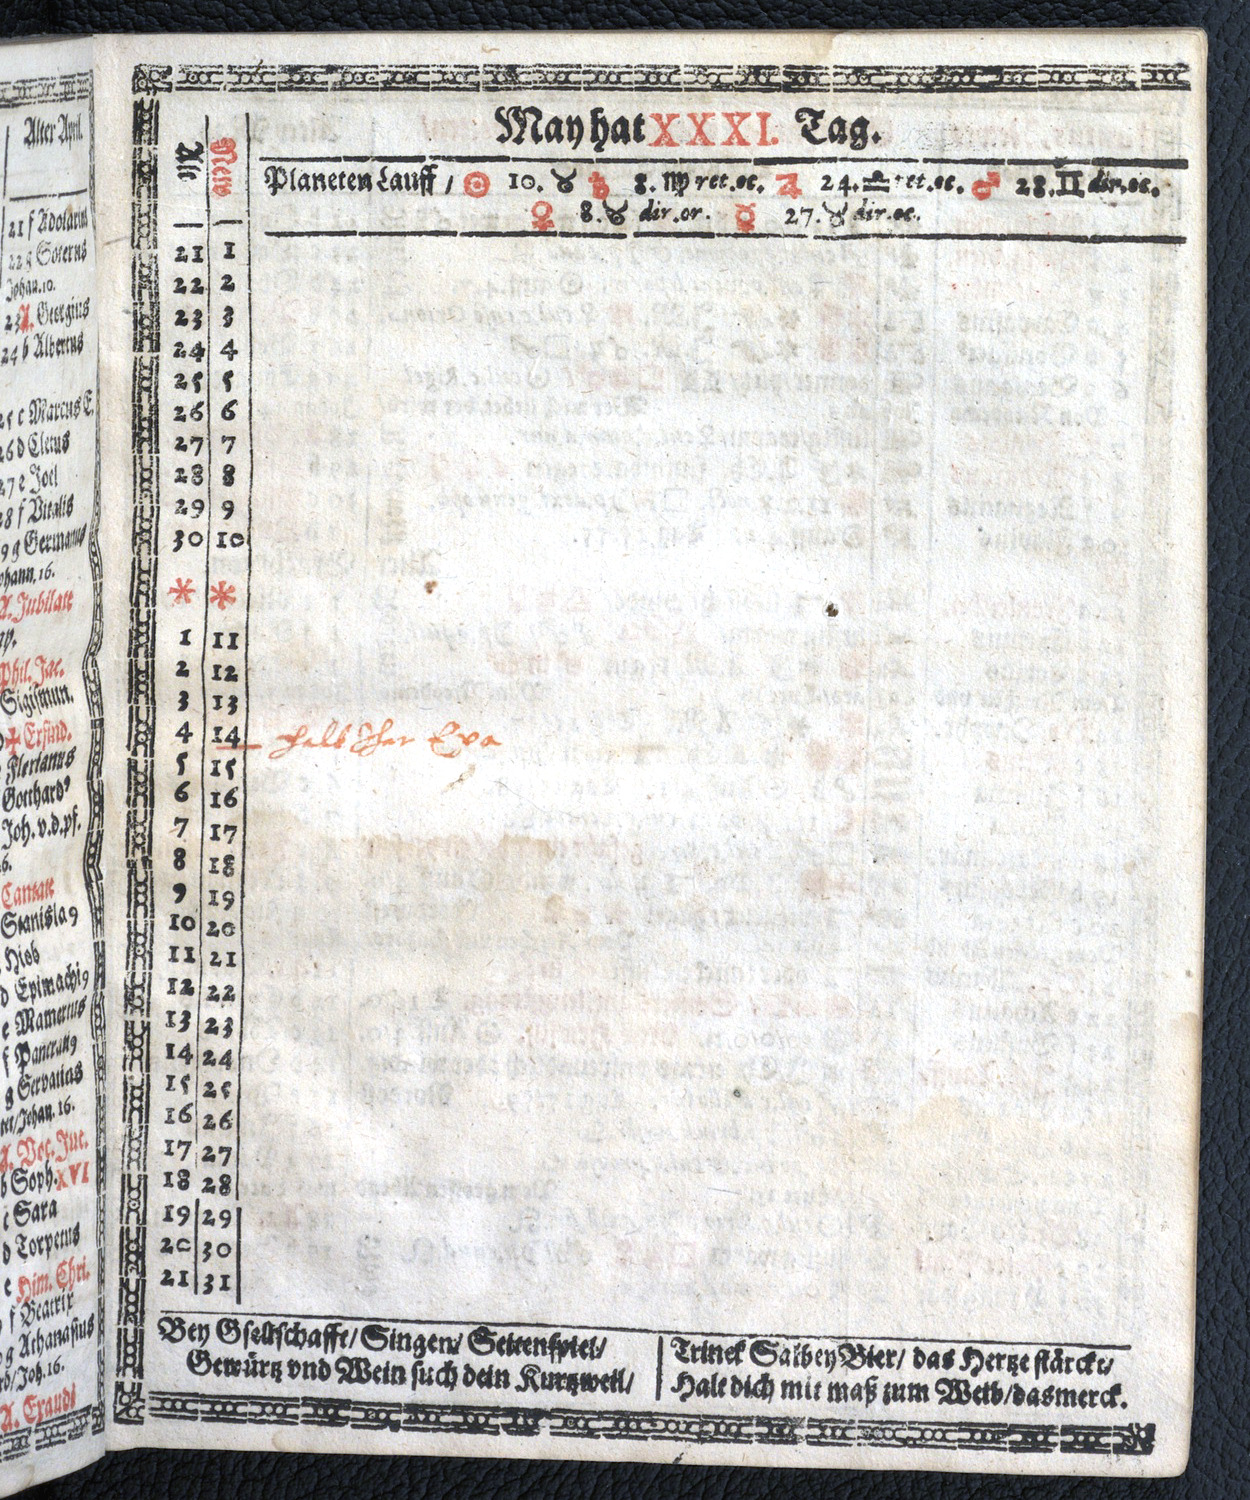 Alter April.
21 f Adolarius
22 g Soterus
Johan. 10.
23 A. Georgius
24 b Albertus
25 c Marcus E.
26 d Cletus
27 e Joel
28 f Vitalis
29 g Germanus
Johann. 16.
A. Jubilate
Phil. Jac.
Sigismun.
✝ Erfind.
Florianus
Gotthard9
Joh. v. d. pf.
16.
Cantate
Stanisla9
Hiob
d Epimachi9
e Mamertus
f Pancrati9
g Servatius
Johan. 16.
A. Voc. Juc.
b Soph. XVI
c Sara
d Torpetus
e Him. Chri.
f Beatrix
g Athanasius
Joh. 16.
A. Exaudi
May hat XXXI. Tag.
Alt
New
Planeten Lauff / ☉ 10. ♉ ♄ 8. ♍ ret. oc. ♃ 24. ♎ ret. oc. ♂ 28. ♊ dir. oc.
♀ 8. ♉ dir. or. ☿ 27. ♉ dir. oc.
21 1
22 2
23 3
24 4
25 5
26 6
27 7
28 8
29 9
30 10
* *
1 11
2 12
3 13
4 14
5 15
6 16
7 17
8 18
9 19
10 20
11 21
12 22
13 23
14 24
15 25
16 26
17 27
18 28
19 29
20 30
21 31
Bey Gsellschafft/ Singen/ Seitenspiel/
Gewürtz vnd Wein such dein Kurtzweil/
Trinck Salbey Bier/ das Hertze stärcke/
Halt dich mit maß zum Weib/ das merck.